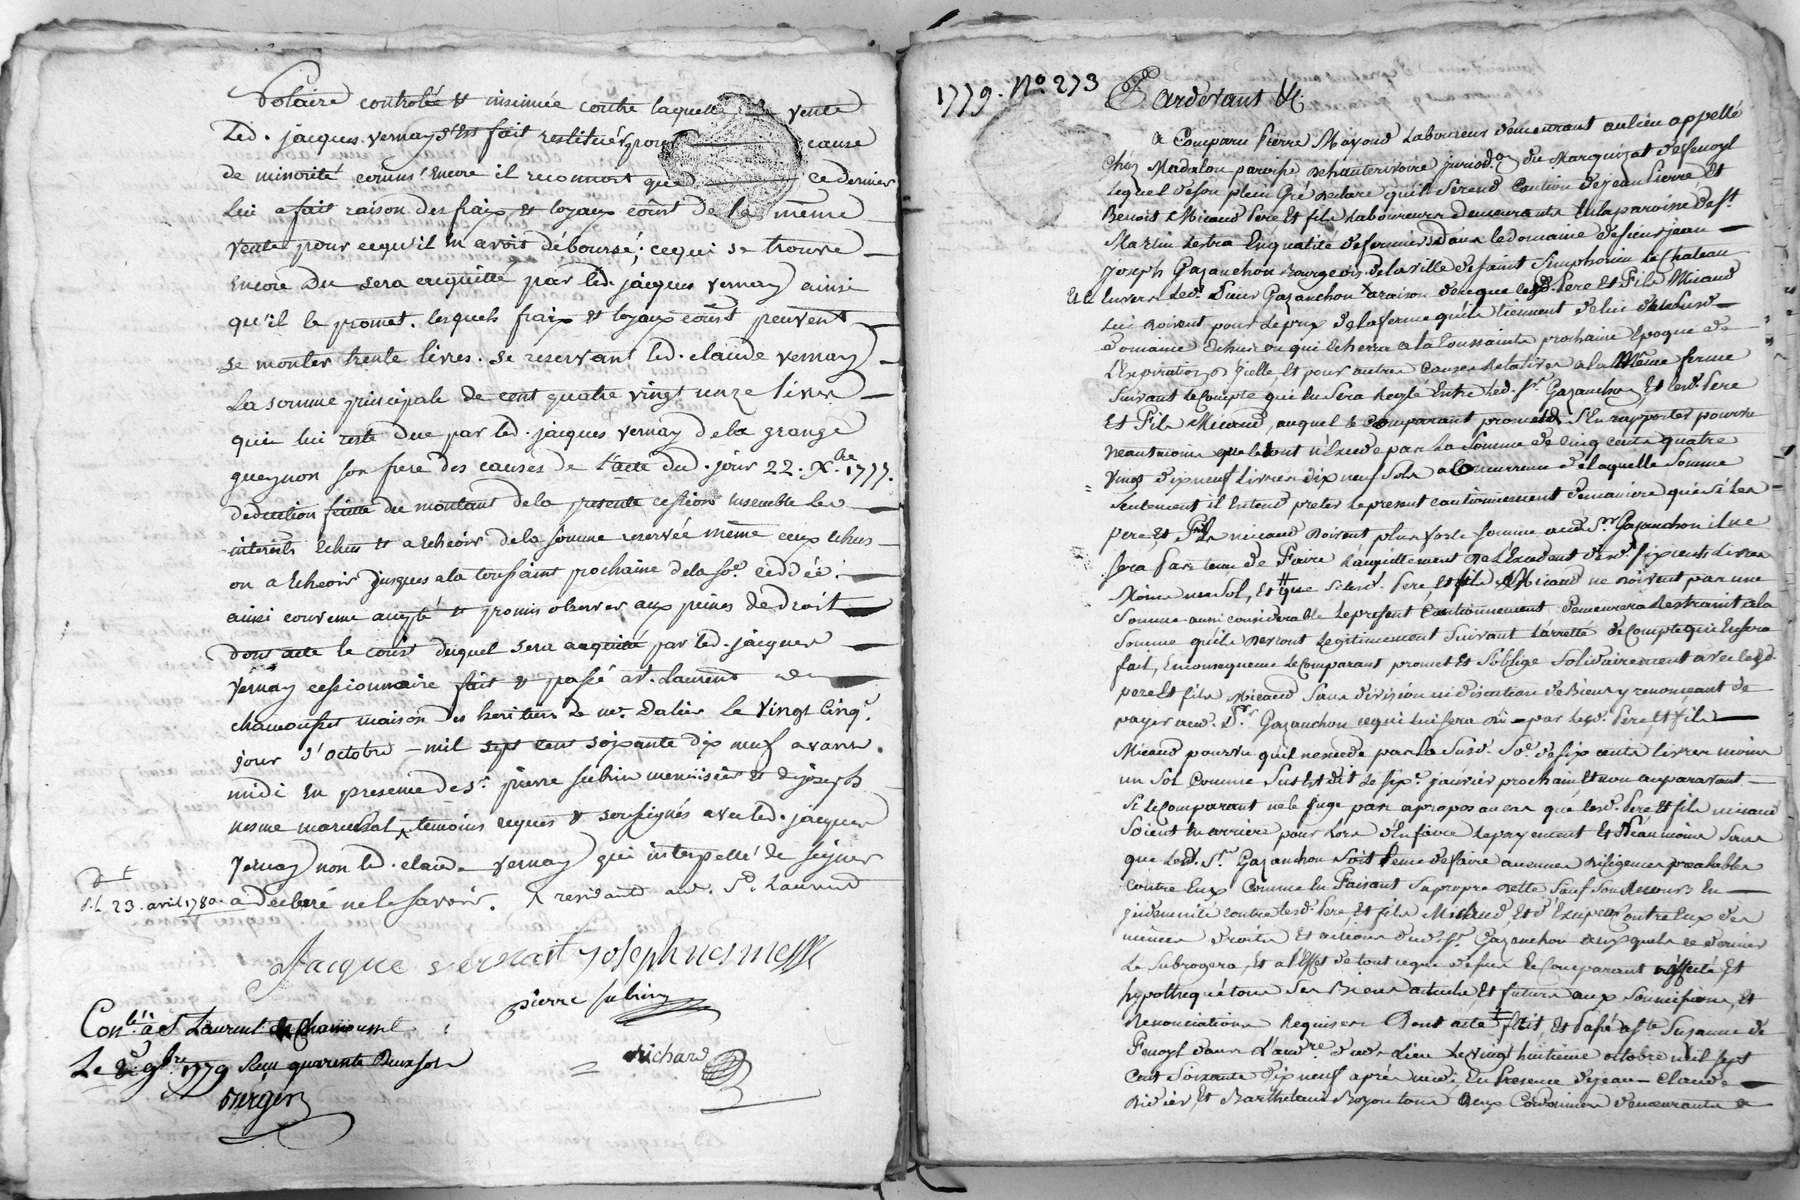 Notaire controlée et insinuée contre laquelle vente
Led. jacques vernay s'est fait restituer pour cause
de minorité comm' Encore il reconnoit que ce dernier
Lui a fait raison des fraix et loyaux coust de la même
vente pour cequ'il en avoit déboursé; cequi se trouve
Encore Du sera acquitté par led. jacques vernay ainsi
qu'il le promet. lesquels fraix et loyaux coust peuvent
se monter trente livres. se reservant led. claude vernay
La somme principale de cent quatre vingt unze livres
qui lui reste due par led. jacques vernay dela grange
gueynon son frere des causes de l'acte dud. jour 22. Xbre 1777.
deduction faitte du montant dela presente cession ensemble les
interêts Echus et a Echeoir dela somme reservée même ceux Echus
ou a Echeoir jusques ala toussaint prochaine dela so.e ceddée.
ainsi convenu accepté et promis observer aux peines de droit
dont acte le coust duquel sera acquitté par led. jacques
vernay cessionnaire fait et passé a st. Laurent de
chamousset maison des heritiers de me. Dalier Le vingt cinq.e
jour d'octobre mil sept cent soixante dix neuf avant
midi En presence de sr. pierre subrin menuisier et de joseph
nesme marechal ^ temoins requis et soussignés avec led. jacques
vernay non led. claude vernay qui interpellé de signer
d.L 23. avril 1780 a Declaré nele savoir. ^ residants aud. St. Laurend
Jacque vernait joseph nesme
pierre subrin
Con.lé à St Laurent de Chamousset
Le 8e 9bre 1779 Reçu quarente Deux sols
Richard
1779. No. 273
Pardevant &c.
A Comparu Pierre Mayoud Laboureur demeurant aulieu appellé
Chez Madalon paroisse de hauterivoire jurisd.on du Marquizat de fenoyl
Lequel deson plein Gré Declare qu'il serend Caution dejean Pierre Et
Benoit Micaud Pere Et fils Laboureurs demeurants En la paroisse de st.
Martin Lestra Enqualité de fermiers dans le domaine de sieur jean
joseph Gazanchon Bourgeois de la ville de saint Simphorien le chateau
Et ce Envers Led. Sieur Gazanchon araison de ceque lesd. Pere Et Fils Micaud
Lui doivent pour Leprix de la ferme qu'ils tiennent de lui dela susd.
Domaine Echue ou qui Echerra a la Toussaints prochaine Epoque de
L'Expiration d'icelle, Et pour autres Causes Relatives a la Même ferme
suivant le Compte qui En sera Reglé Entre led. sr. Gazanchon Et lesd. Pere
Et Fils Micaud, auquel le Comparant promet s'En rapporter pourvu
Neantmoins que letout n'Excede pas La somme de cinq cents quatre
vingt dixneuf Livres dix neuf sols a Concurrence de laquelle somme
seulement il Entend preter lepresent cautionnement demaniere que si les
pere Et Fils micaud doivent plus forte somme aud. sr. Gazanchon il ne
sera pas tenu de Faire L'acquittement de L'Excedent desd. six cents Livres
Moins un sol, Et que si lesd. Pere, Et fils Micaud ne doivent pas une
somme aussi considerable Lepresent Cautionnement demeurera Restraint a la
somme qu'ils Devront Legitimement suivant L'arretté de Compte qui En sera
fait, En consequence Le Comparant promet Et s'oblige solidairement avec lesd.
pere Et fils Micaud sans division ni discution de Biens y renonceant de
payer aud. sr. Gazanchon cequi lui sera dû par lesd. Pere, Et fils
Micaud pourvu qu'il n'excede pas La susd. so.e de six cents livres moins
un sol Comme sus Est dit Le six.e janvier prochain Et non auparavant
si le Comparant ne le juge pas apropos au cas que lesd. Pere Et fils micaud
soient En arriere pour Lors d'En faire Lepayement Et Neanmoins sans
que Led. sr. Gazanchon soit tenu de faire aucunes diligences prealables
contre Eux Comme En Faisant sa propre dette sauf son Recours En
indemnité contre lesd. Pere, Et fils Micaud, Et d'Exiper Contre Eux des
mêmes droits Et actions dud. sr. Gazanchon auxquels ce dernier
Le subrogera, Et a l'Effet de tout ceque dessus le Comparant affecté, Et
hypothequé tous ses Biens actuels Et futurs aux soumissions, Et
Renonciations Requises Dont acte Fait, Et Passé a ste Suzanne de
Fenoyl dans L'aud.re dud. Lieu Le vingt huitieme octobre mil sept
cent soixante dix neuf après midi En Presence de jean Claude
Didier, Et Barthelemi Boyon tous deux Cordonniers demeurants a